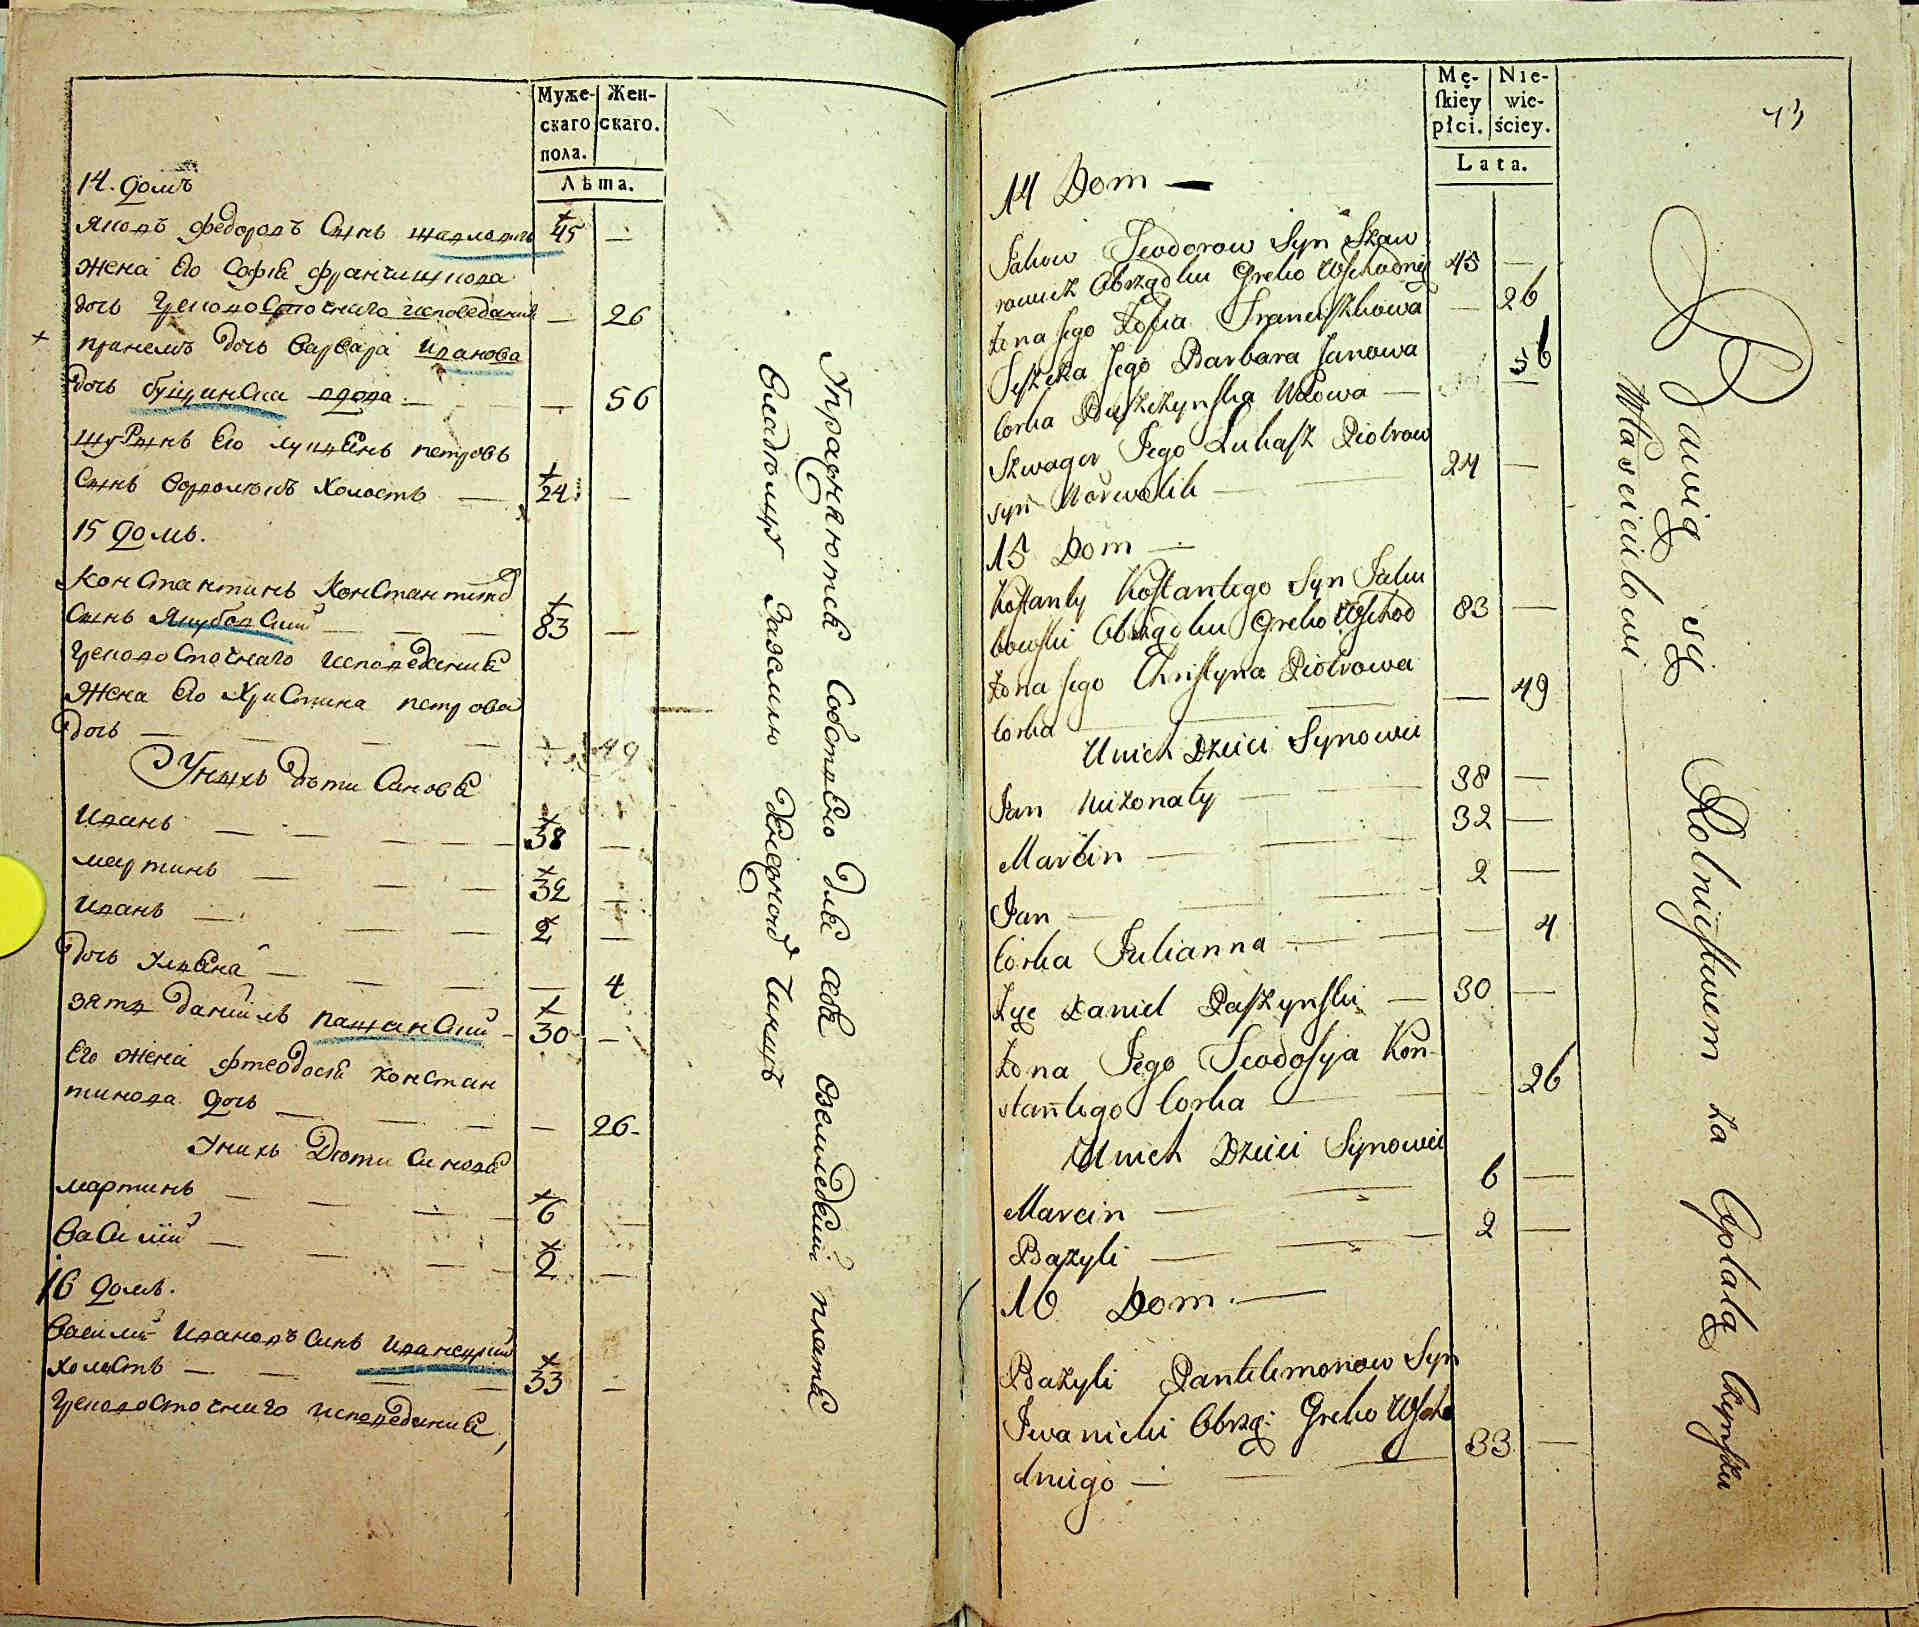 Муже-
скаго
пола.
Жен-
скаго.
Лѣта.
14. домъ
Яковъ Федоровъ Сынъ 45 —
жена Его Софія Францишкова
дочь Грековосточнаго исповеданія — 26
дочь Варвара Иванова
дочь Бущинска вдова — 56
шуринъ Его Лукіянъ Петровъ
Сынъ холостъ — 24 —
15 домъ.
Константинъ Константиновъ
Сынъ Якубовский — 83 —
Грековосточнаго исповеданія
Жена Его Христина петрова
дочь — — 49
Унихъ дѣти Синовя
Иванъ — 38 —
мартинъ — 32 —
Иванъ — 2 —
дочь Улияна — — 4
зять Даниилъ пашинский — 30 —
Его жена Фтеодосія констан
тинова дочь — — 26
Унихъ Дѣти Синовя
мартинъ — 6 —
Василий — 2 —
16 домъ.
Василий Ивановъ Синъ Иваницкий
холостъ — 33 —
Грековосточнаго исповеданія,
Упражняются Собственно для себя земледелія плата
Владелцу
43
Mę-
ſkiey
płci.
Nie-
wie-
ściey.
Lata.
14 Dom —
Jakow Teodorow Syn Szaw
rowicz Obrządku Greko Wschodnieg 45 —
Żona Jego Zofia Franciszkowa — 26
Jego Barbara Janowa 56
Corka Buszczynska Wdowa —
Szwager Jego Lukasz Piotrow
syn 24 —
15 Dom —
Kostanty Kostantego Syn Jaku
bowski Obrządku Greko Wschod 83 —
Żona Jego Christyna Piotrowa
Corka — — 49
Unich Dzieci Synowie
Jan Nieżonaty — 38 —
Marcin — 32 —
Jan — 2 —
Córka Julianna — — 4
Zięć Daniel Paszynski — 30 —
Żona Jego Teodosya Kon-
stantego Corka — 26
Unich Dzieci Synowie
Marcin — 6 —
Bazyli — 2 —
16 Dom. —
Bazyli Pantelimonow Syn
Iwanicki Obrzą: Greko Wscho
dniego — 33 —
Bawią się Rolnictwem za Opłatą Czynszu
Właścicielowi —